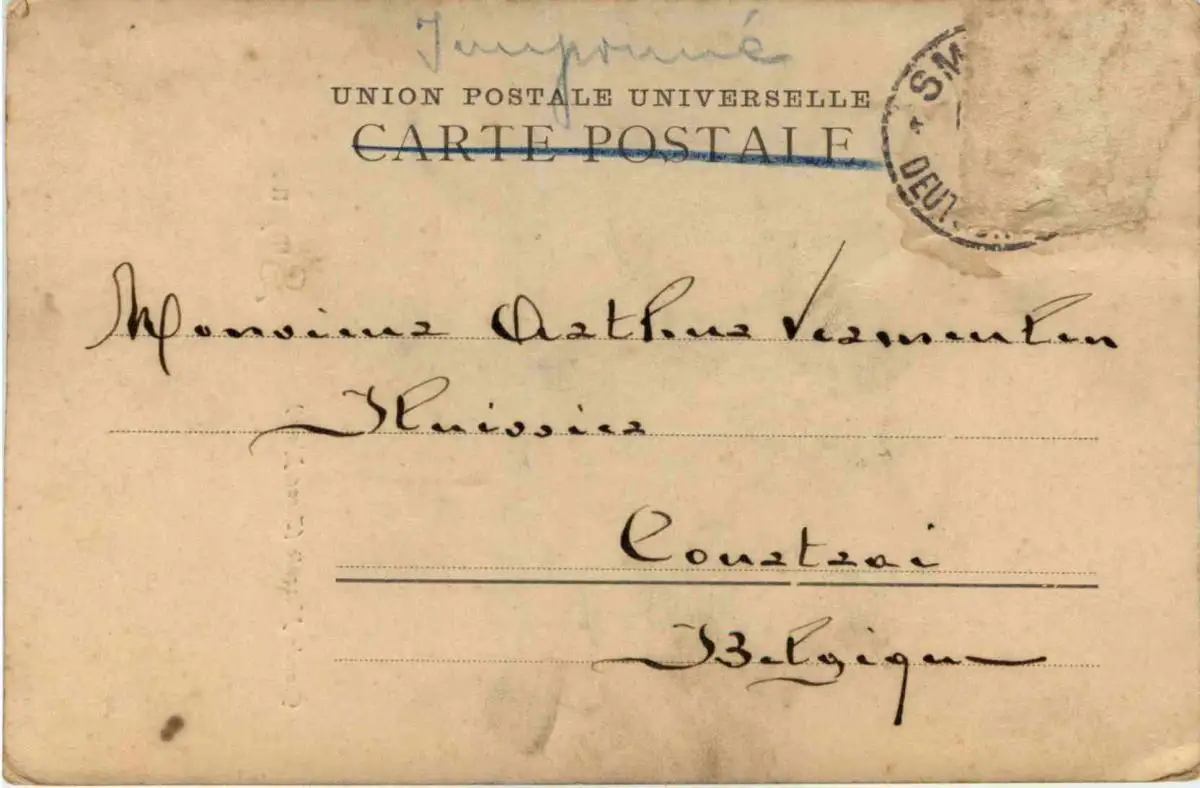 Imprimé
UNION POSTALE UNIVERSELLE
CARTE POSTALE
SM
DEUT
Monsieur Arthur Vermeulen
Huissier
Courtrai
Belgique